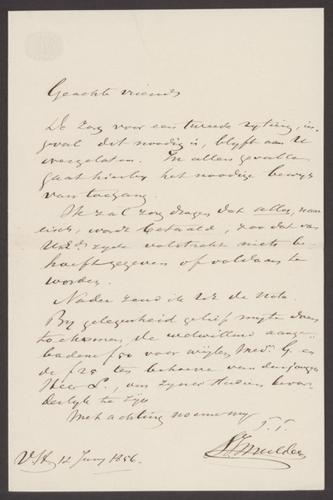 Geachte vriend,
De zorg voor een tweede zitting, in
geval dit noodig is, blyft aan U
overgelaten. In allen gevalle
gaat hierby het noodige bewys
van toegang.
Ik zal zorg dragen dat alles, van
wordt betaald, zoo dat van
UEd. zyde volstrekt niets be-
hoeft gegeven of voldaan te
worden.
Nader zend ik UE de nota.
By gelegenheid gelief my te doen
toekomen, de welwillend aange-
bodene f50 voor wijlen Med. G. en
de f25 ten behoeve van den jongen
Heer L., om zyne studien
te zyn
Met achting noem ik my
T.T.
Mulder
12 Juny 1856.